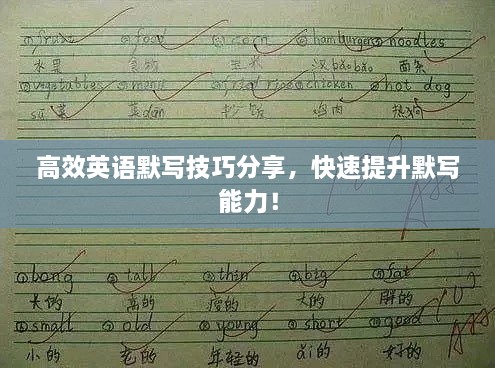 ①fruit ②food ③corn ④hamburger ⑤noodles
水果 食物 玉米 汉bǎobǎo 面条
⑥vegetables ⑦menu ⑧fried rice ⑨chicken ⑩hot dog
菜 菜dān 炒饭 鸡肉 热狗
高效英语默写技巧分享，快速提升默写
能力！
①long ②tall ③thin ④big ⑤fat
长的 高的 瘦的 大的 胖的
⑥small ⑦old ⑧young ⑨short ⑩good
小的 老的 年轻的 ǎi的 好的